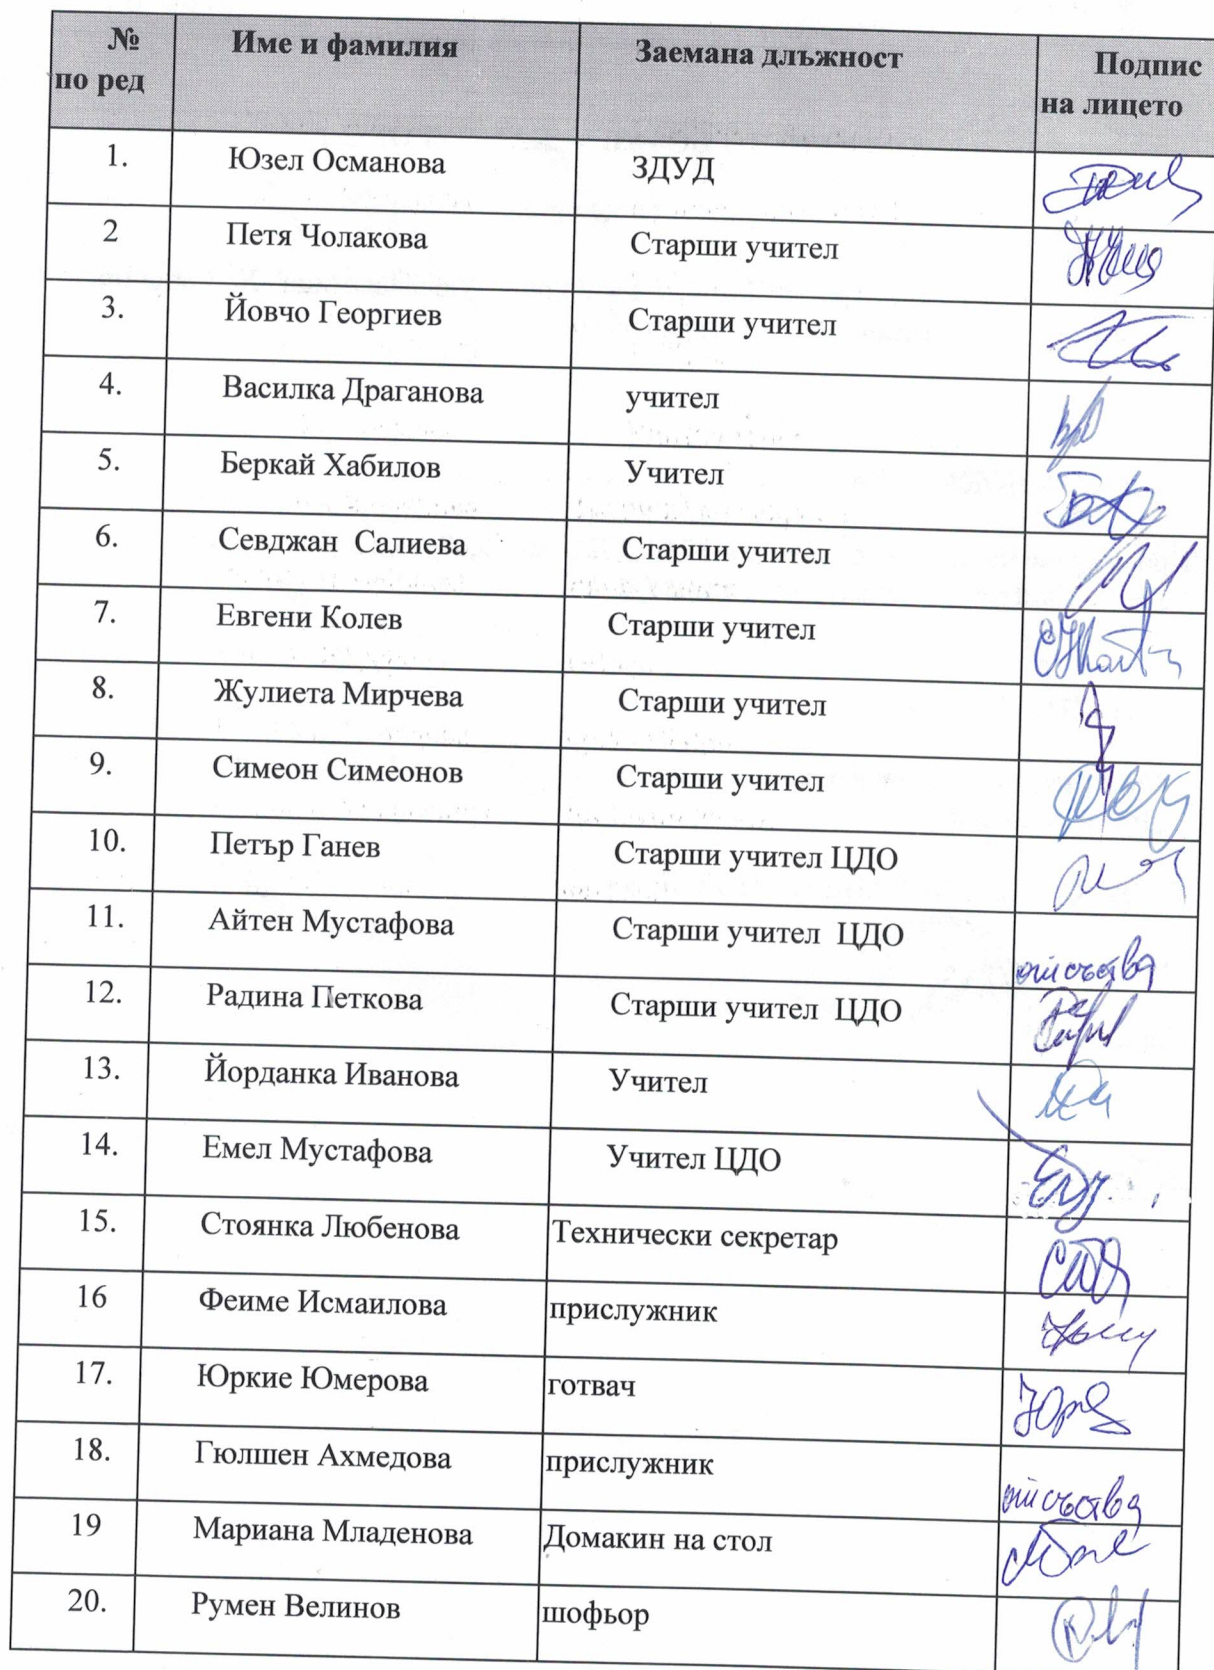 № по ред Име и фамилия Заемана длъжност Подпис на лицето
1. Юзел Османова ЗДУД
2 Петя Чолакова Старши учител
3. Йовчо Георгиев Старши учител
4. Василка Драганова учител
5. Беркай Хабилов Учител
6. Севджан Салиева Старши учител
7. Евгени Колев Старши учител
8. Жулиета Мирчева Старши учител
9. Симеон Симеонов Старши учител
10. Петър Ганев Старши учител ЦДО
11. Айтен Мустафова Старши учител ЦДО отсъства
12. Радина Петкова Старши учител ЦДО
13. Йорданка Иванова Учител
14. Емел Мустафова Учител ЦДО
15. Стоянка Любенова Технически секретар
16 Феиме Исмаилова прислужник
17. Юркие Юмерова готвач
18. Гюлшен Ахмедова прислужник отсъства
19 Мариана Младенова Домакин на стол
20. Румен Велинов шофьор